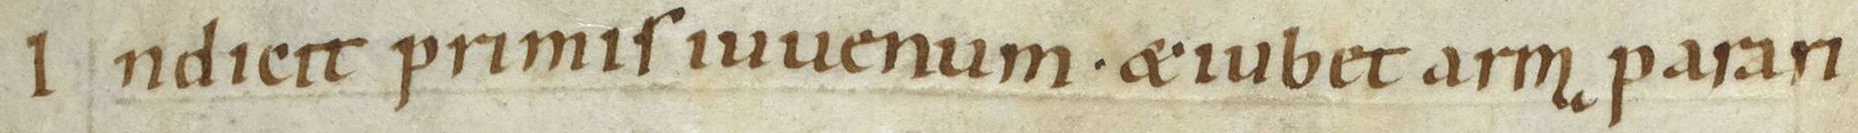 I ndicit primiſ iuuenum · & iubet arma parari